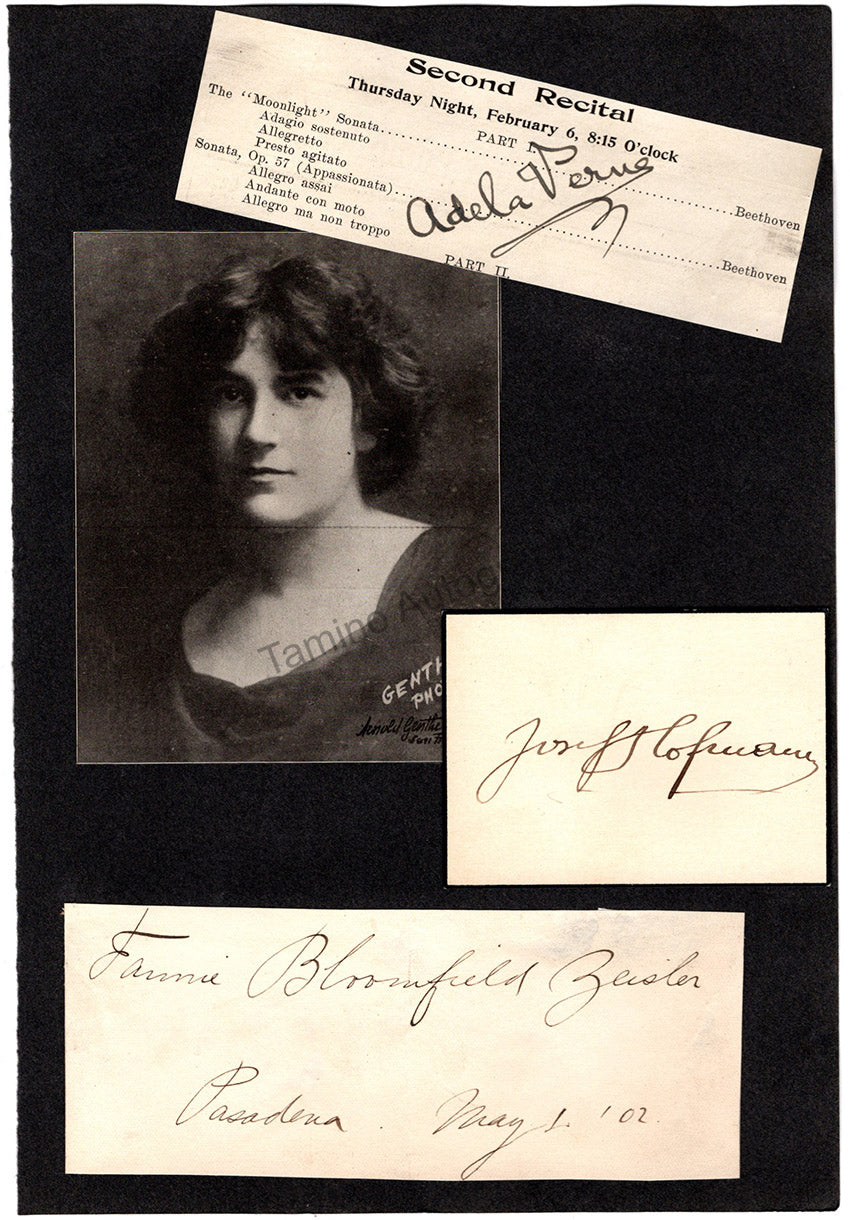 Second Recital
Thursday Night, February 6, 8:15 O'clock
PART I.
The "Moonlight" Sonata........................Beethoven
Adagio sostenuto
Allegretto
Presto agitato
Sonata, Op. 57 (Appassionata)........................Beethoven
Allegro assai
Andante con moto
Allegro ma non troppo
Adela Verne
PART II.
Tamino Autog
GENTH
PHO
Arnold Genthe
Josef Hofmann
Fannie Bloomfield Zeisler
Pasadena. May 1. '02.